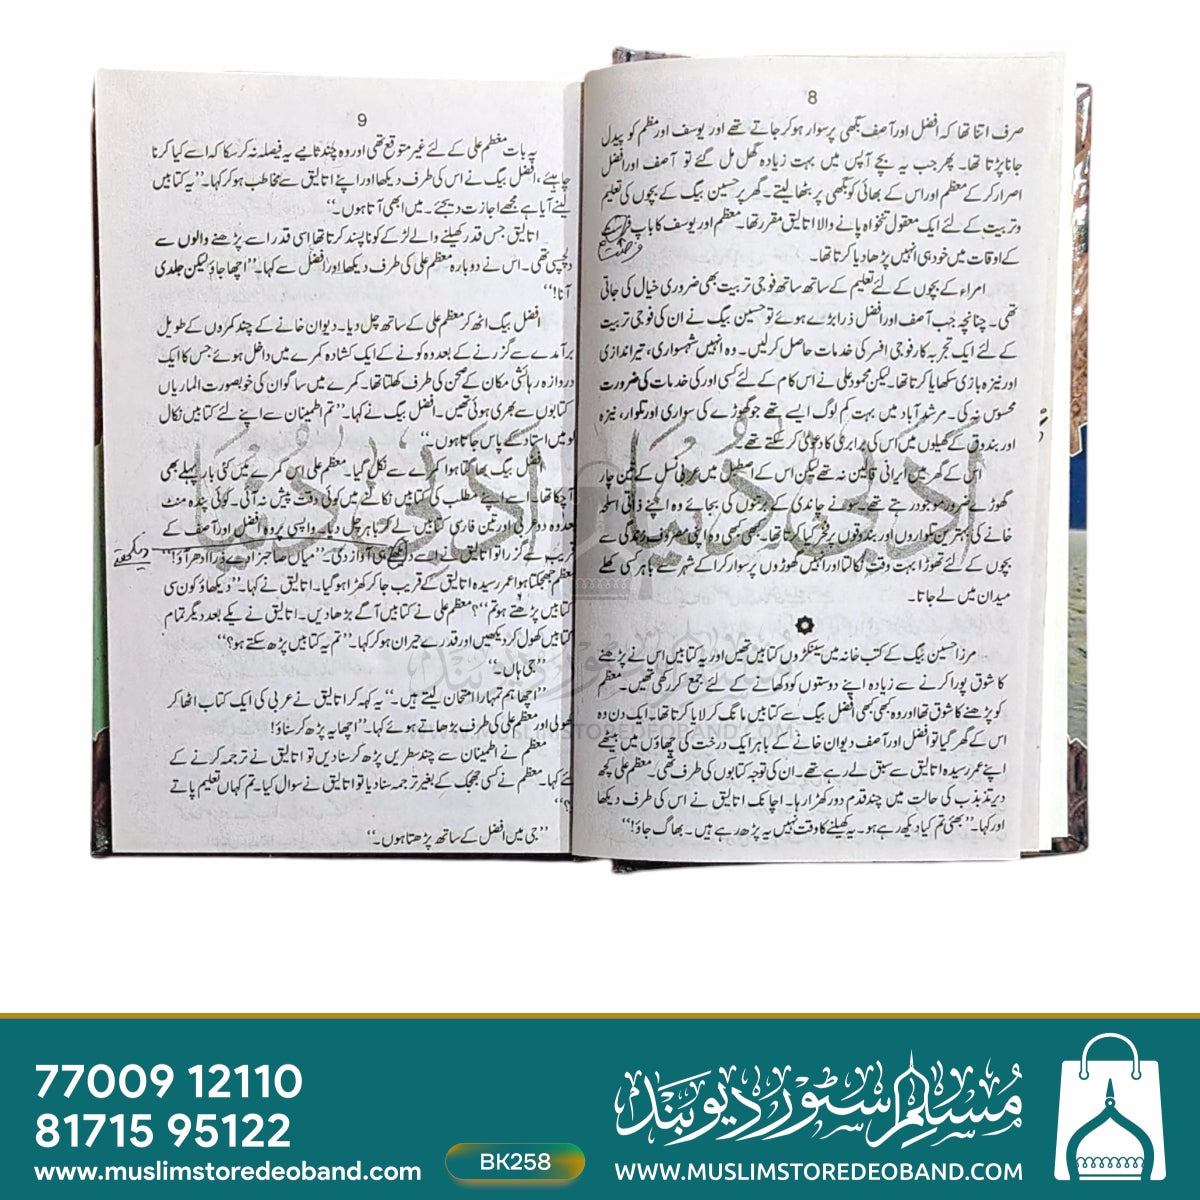 8
صرف اتنا تھا کہ افضل اور آصف بگھی پر سوار ہو کر جاتے تھے اور یوسف اور معظم کو پیدل
جانا پڑتا تھا۔ پھر جب یہ بچے آپس میں بہت زیادہ گھل مل گئے تو آصف اور افضل
اصرار کر کے معظم اور اس کے بھائی کو بگھی پر بٹھا لیتے۔ گھر پر حسین بیگ کے بچوں کی تعلیم
و تربیت کے لئے ایک معقول تنخواہ پانے والا اتالیق مقرر تھا۔ معظم اور یوسف کا باپ فرصت
کے اوقات میں خود ہی انہیں پڑھا دیا کرتا تھا۔
امراء کے بچوں کے لئے تعلیم کے ساتھ ساتھ فوجی تربیت بھی ضروری خیال کی جاتی
تھی۔ چنانچہ جب آصف اور افضل ذرا بڑے ہوئے تو حسین بیگ نے ان کی فوجی تربیت
کے لئے ایک تجربہ کار فوجی افسر کی خدمات حاصل کر لیں۔ وہ انہیں شہسواری، تیر اندازی
اور نیزہ بازی سکھایا کرتا تھا۔ لیکن محمود علی نے اس کام کے لئے کسی اور کی خدمات کی ضرورت
محسوس نہ کی۔ مرشد آباد میں بہت کم لوگ ایسے تھے جو گھوڑے کی سواری اور تلوار، نیزہ
اور بندوق کے کھیلوں میں اس کی برابری کا دعویٰ کر سکتے تھے۔
اس کے گھر میں ایرانی قالین نہ تھے لیکن اس کے اصطبل میں عربی نسل کے تین چار
گھوڑے ضرور موجود رہتے تھے۔ سونے چاندی کے برتنوں کی بجائے وہ اپنے ذاتی اسلحہ
خانے کی بہترین تلواروں اور بندوقوں پر فخر کیا کرتا تھا۔ کبھی کبھی وہ اپنی مصروف زندگی سے
بچوں کے لئے تھوڑا بہت وقت نکالتا اور انہیں گھوڑوں پر سوار کرا کے شہر سے باہر کسی کھلے
میدان میں لے جاتا۔
مرزا حسین بیگ کے کتب خانہ میں سینکڑوں کتابیں تھیں اور یہ کتابیں اس نے پڑھنے
کا شوق پورا کرنے سے زیادہ اپنے دوستوں کو دکھانے کے لئے جمع کر رکھی تھیں۔ معظم
کو پڑھنے کا شوق تھا اور وہ کبھی کبھی افضل بیگ سے کتابیں مانگ کر لایا کرتا تھا۔ ایک دن وہ
اس کے گھر گیا تو افضل اور آصف دیوان خانے کے باہر ایک درخت کی چھاؤں میں بیٹھے
اپنے عمر رسیدہ اتالیق سے سبق لے رہے تھے۔ ان کی توجہ کتابوں کی طرف تھی۔ معظم علی کچھ
دیر تذبذب کی حالت میں چند قدم دور کھڑا رہا۔ اچانک اتالیق نے اس کی طرف دیکھا
اور کہا۔ ”بھئی تم کیا دیکھ رہے ہو۔ یہ کھیلنے کا وقت نہیں یہ پڑھ رہے ہیں۔ بھاگ جاؤ!“
9
یہ بات معظم علی کے لئے غیر متوقع تھی اور وہ چند ثانیے یہ فیصلہ نہ کر سکا کہ اسے کیا کرنا
چاہیئے، افضل بیگ نے اس کی طرف دیکھا اور اپنے اتالیق سے مخاطب ہو کر کہا۔ ”یہ کتابیں
لینے آیا ہے مجھے اجازت دیجئے۔ میں ابھی آتا ہوں۔“
اتالیق جس قدر کھیلنے والے لڑکے کو ناپسند کرتا تھا اسی قدر اسے پڑھنے والوں سے
دلچسپی تھی۔ اس نے دوبارہ معظم علی کی طرف دیکھا اور افضل سے کہا۔ ”اچھا جاؤ لیکن جلدی
آنا!“
افضل بیگ اٹھ کر معظم علی کے ساتھ چل دیا۔ دیوان خانے کے چند کمروں کے طویل
برآمدے سے گزرنے کے بعد وہ کونے کے ایک کشادہ کمرے میں داخل ہوئے جس کا ایک
دروازہ رہائشی مکان کے صحن کی طرف کھلتا تھا۔ کمرے میں ساگوان کی خوبصورت الماریاں
کتابوں سے بھری ہوئی تھیں۔ افضل بیگ نے کہا۔ ”تم اطمینان سے اپنے لئے کتابیں نکال
لو میں استاد کے پاس جاتا ہوں۔“
افضل بیگ بھاگتا ہوا کمرے سے نکل گیا۔ معظم علی اس کمرے میں کئی بار پہلے بھی
آچکا تھا۔ اسے اپنے مطلب کی کتابیں نکالنے میں کوئی دقت پیش نہ آئی۔ کوئی پندرہ منٹ
بعد وہ دو عربی اور تین فارسی کتابیں لے کر باہر چل دیا۔ واپسی پر وہ افضل اور آصف کے
قریب سے گزرا تو اتالیق نے اسے دیکھتے ہی آواز دی۔ ”میاں صاحبزادے ذرا ادھر آؤ!“
معظم جھجکتا ہوا عمر رسیدہ اتالیق کے قریب جا کر کھڑا ہو گیا۔ اتالیق نے کہا۔ ”دیکھاؤ کون سی
کتابیں پڑھتے ہو تم“؟ معظم علی نے کتابیں آگے بڑھا دیں۔ اتالیق نے یکے بعد دیگر تمام
کتابیں کھول کر دیکھیں اور قدرے حیران ہو کر کہا۔ ”تم یہ کتابیں پڑھ سکتے ہو؟“
”جی ہاں۔“
”اچھا ہم تمہارا امتحان لیتے ہیں۔“ یہ کہہ کر اتالیق نے عربی کی ایک کتاب اٹھا کر
کھولی اور معظم علی کی طرف بڑھاتے ہوئے کہا۔ ”اچھا یہ پڑھ کر سناؤ!
معظم نے اطمینان سے چند سطریں پڑھ کر سنا دیں تو اتالیق نے ترجمہ کرنے کے
لئے کہا۔ معظم نے کسی جھجک کے بغیر ترجمہ سنا دیا تو اتالیق نے سوال کیا۔ تم کہاں تعلیم پاتے
؟“
”جی میں افضل کے ساتھ پڑھتا ہوں۔“
ادبی دنیا ادبی دنیا
مسلم سٹور دیوبند
WWW.MUSLIMSTOREDEOBAND.COM
77009 12110
81715 95122
www.muslimstoredeoband.com
BK258
مسلم سٹور دیوبند
WWW.MUSLIMSTOREDEOBAND.COM